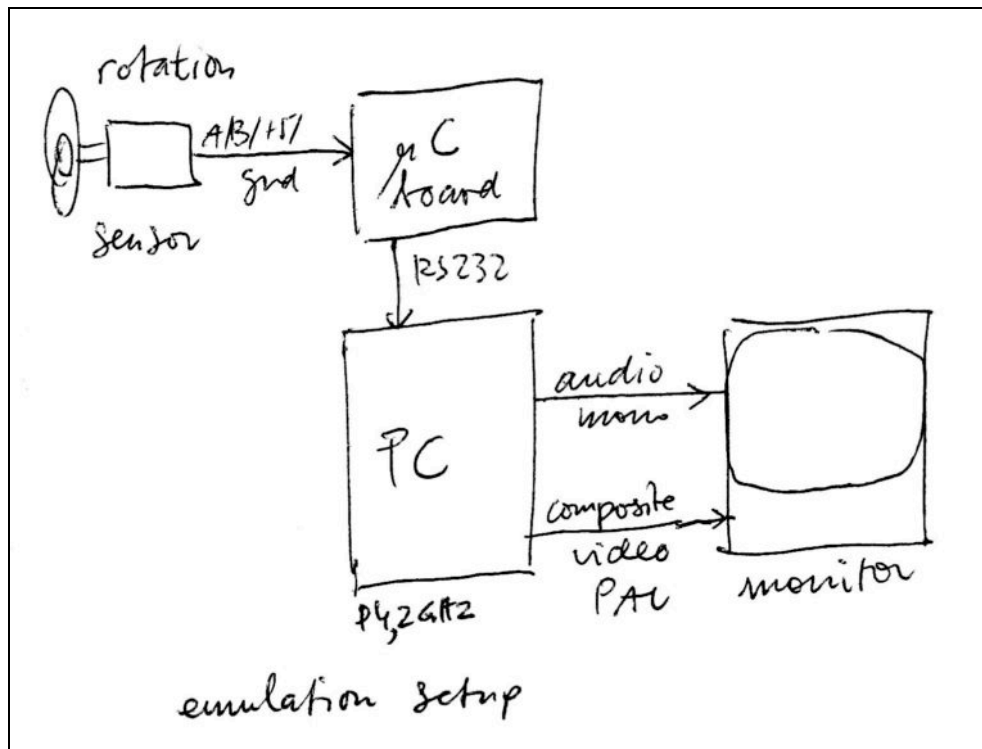 rotation
sensor
A/B/+5/
gnd
µC
board
RS232
PC
P4, 2GHz
audio
mono
composite
video
PAL
monitor
emulation setup